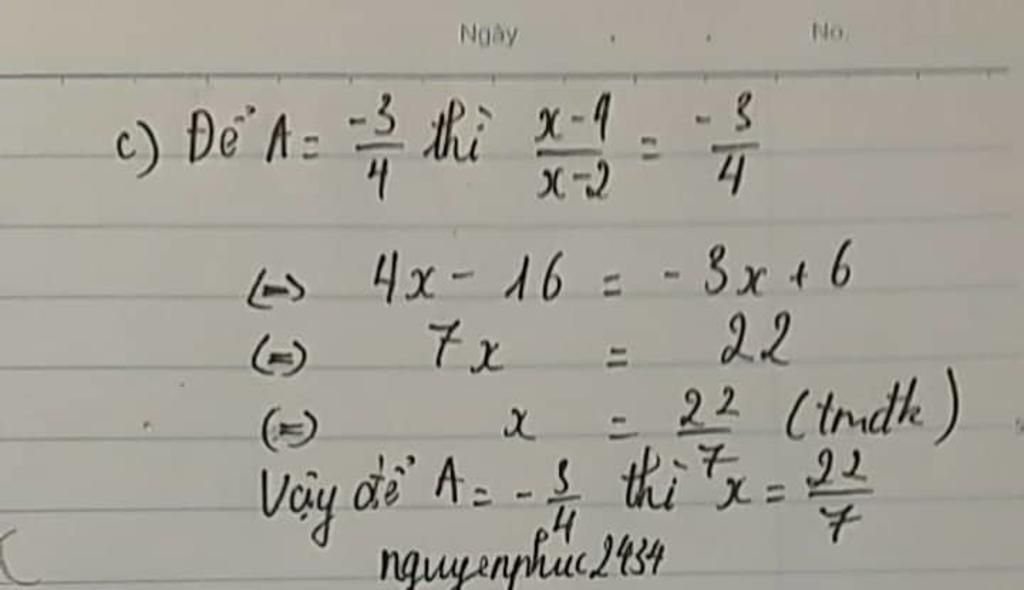 Ngày . . No.
c) Để A = -3/4 thì x-4/x-2 = -3/4
(=) 4x - 16 = -3x + 6
(=) 7x = 22
(=) x = 22/7 (tmđk)
Vậy để A = -3/4 thì x = 22/7
nguyenphuc2434